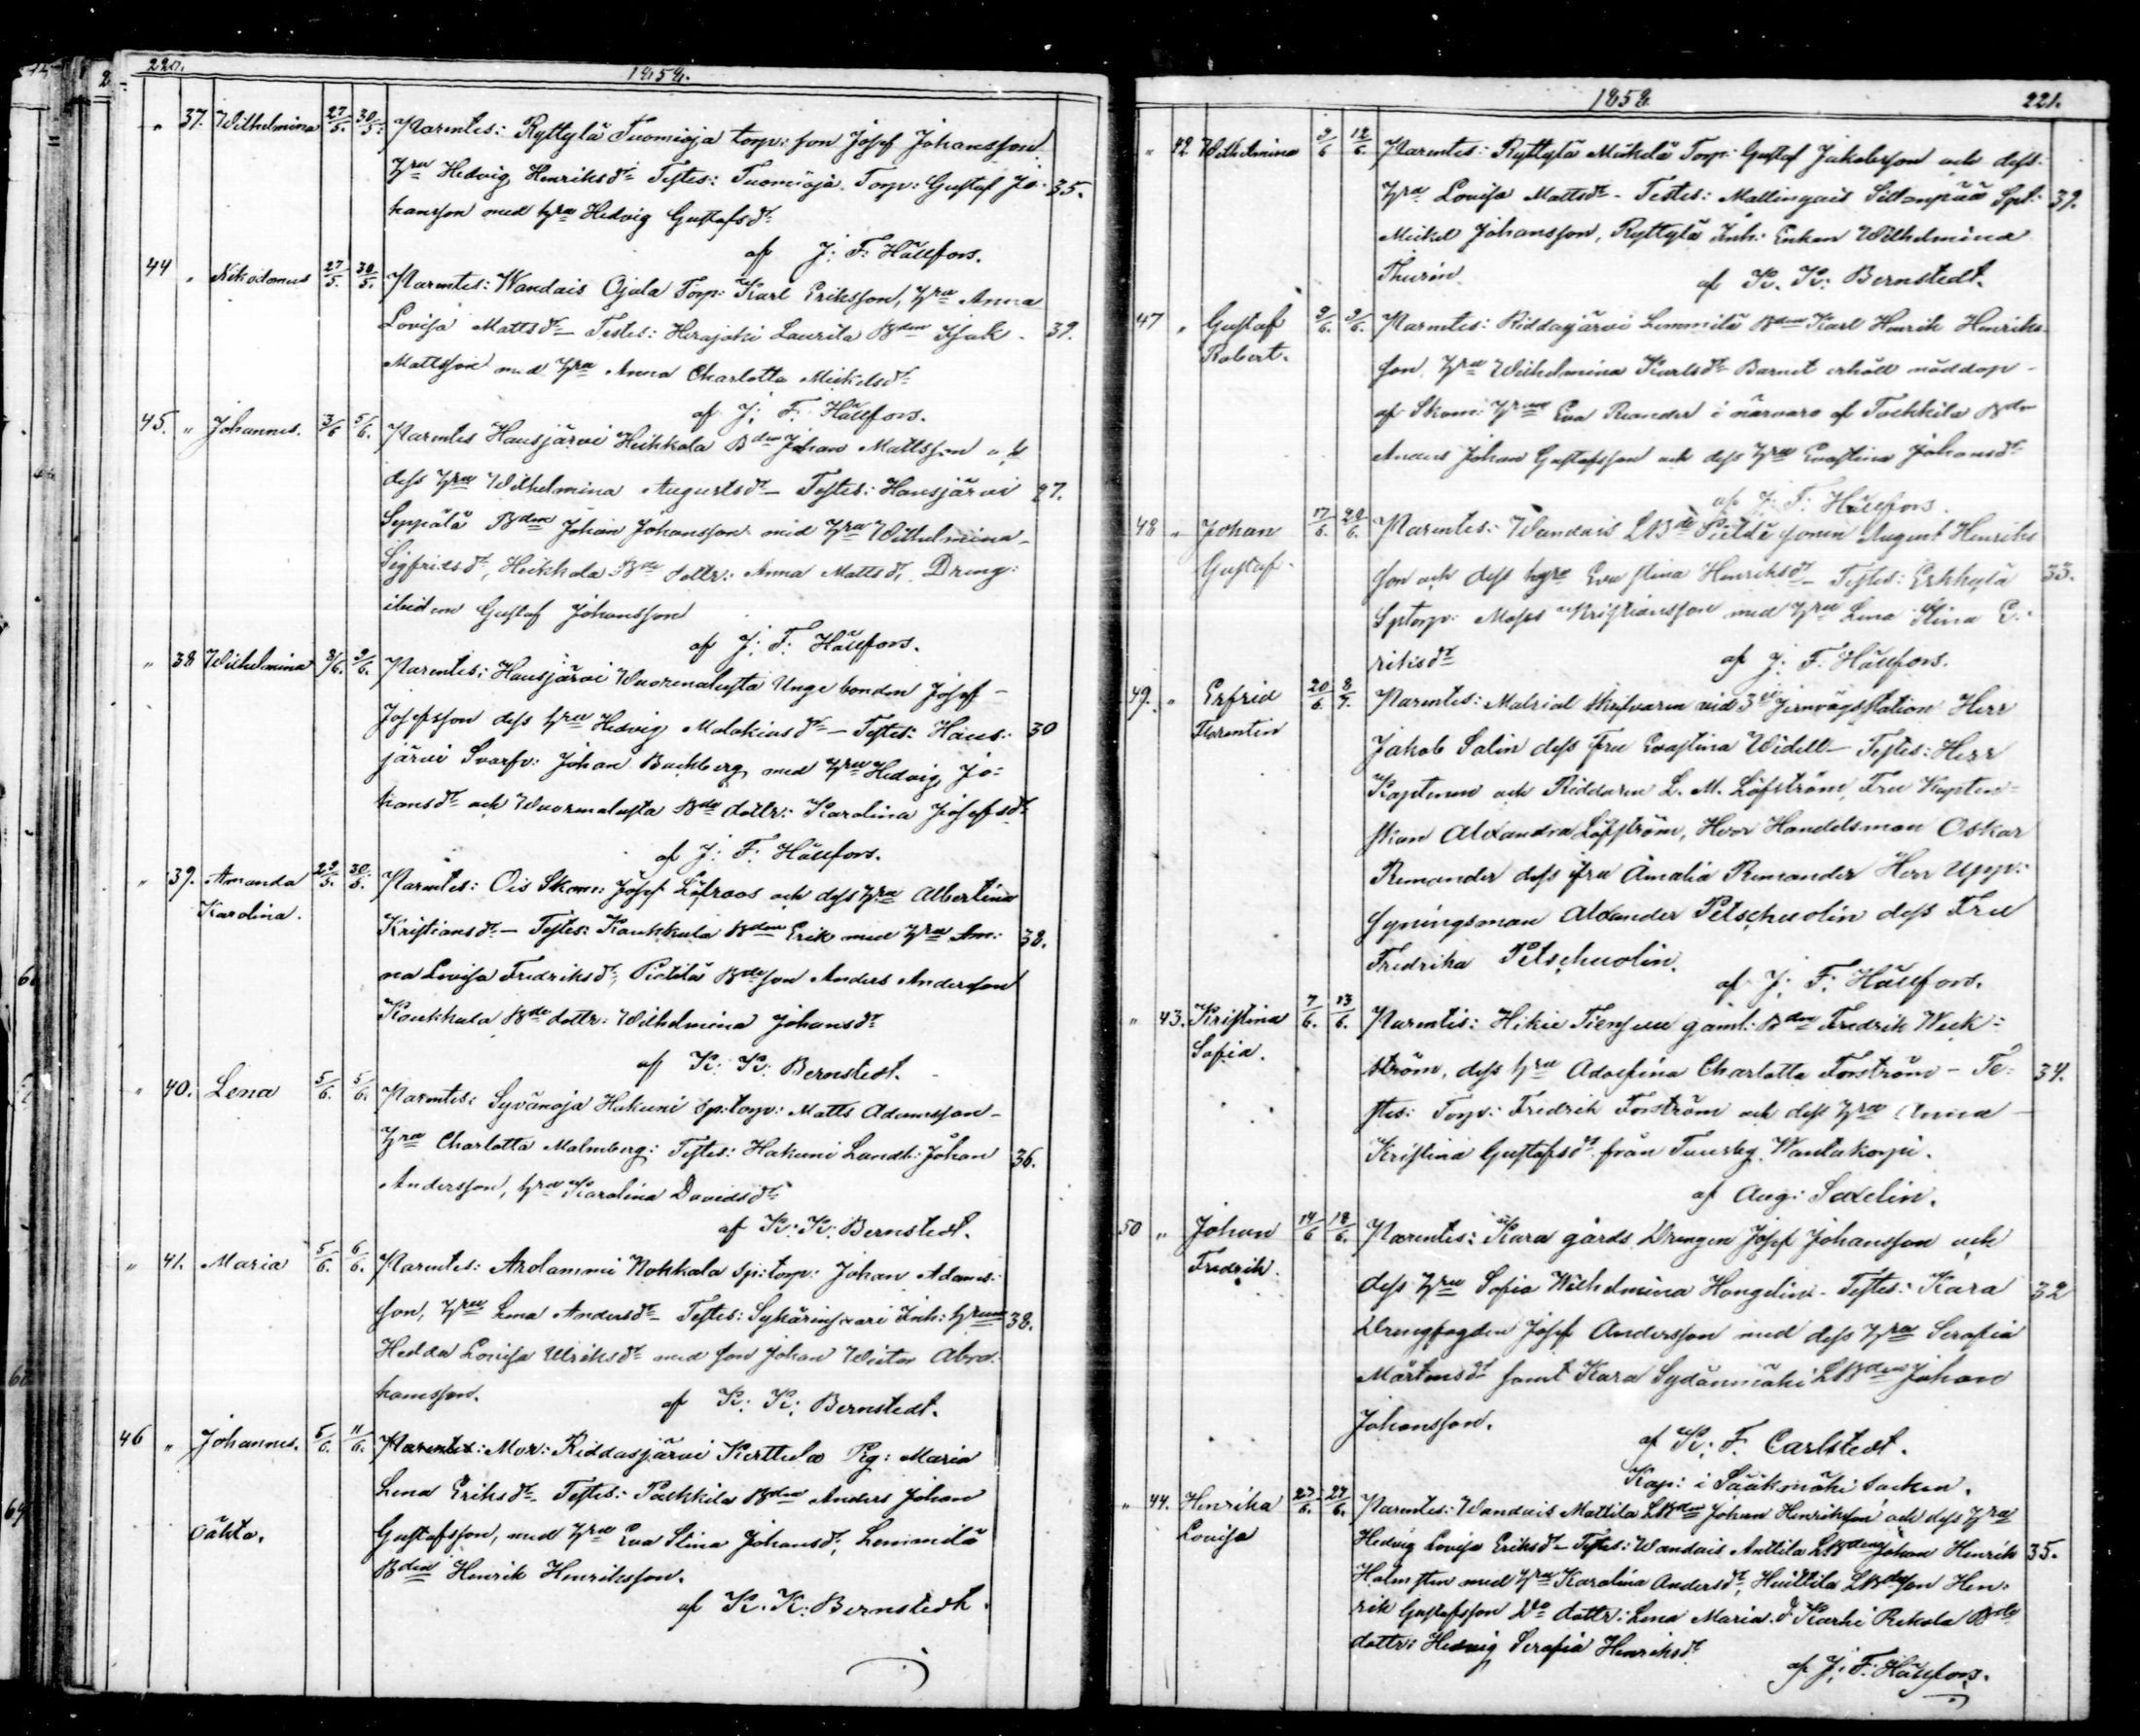 220.
1858.
" 37. Wilhelmina 27/5. 30/5. Parentes: Ryttylä Tuomioja torp: son Josef Johansson
hru Hedvig Henriksdr Testes: Tuomioja Torp: Gustaf Jo- 35.
hansson med hru Hedvig Gustafsdr
af J. F. Hällfors.
44 " Nikodemus 27/5. 30/5. Parentes: Wandais Ojala Torp: Karl Eriksson, hru Anna
Lovisa Mattsdr - Testes: Herajoki Laurila Bden Isak 39.
Mattsson med hru Anna Charlotta Mickelsdr
af J. F. Hällfors.
45. " Johannes. 3/6 5/6. Parentes Hausjärvi Heikkola Bden Johan Mattsson och
dess hru Wilhelmina Augustsdr - Testes: Hausjärvi 27.
Seppälä Bden Johan Johansson med hru Wilhelmina
Sigfridsdr, Heikkola Bde dottr: Anna Mattsdr, Dreng:
ibidem Gustaf Johansson
af J. F. Hällfors.
" 38 Wilhelmina 3/6. 5/6. Parentes: Hausjärvi Wuorenalusta Unge bonden Josef
Josefsson dess hru Hedvig Malakiasdr - Testes: Haus- 30
järvi Svarfv: Johan Buchberg med hru Hedvig Jo-
hansdr och Wuorenalusta Bde dottr: Karolina Josefsdr
af J. F. Hällfors.
" 39. Amanda 29/5. 30/5. Parentes: Ois Skom: Josef Löfroos och dess hru Albertina
Karolina. Kristiansdr - Testes: Koukkula Bden Erik med hru An- 38.
na Lovisa Fredriksdr, Pietilä Bde son Anders Andersson
Koukkula Bde dottr: Wilhelmina Johansdr
af K. K. Bernstedt.
" 40. Lena 5/6. 5/6. Parentes: Syvänoja Hakuni Sp:torp: Matts Adamsson
hru Charlotta Malmberg: Testes: Hakuni Landb: Johan 36.
Andersson, hru Karolina Davidsdr
af K. K. Bernstedt.
" 41. Maria 5/6. 6/6. Parentes: Arolammi Nokkala Sp:torp: Johan Adams-
son, hru Lena Andersdr Testes: Inh: hrun 38.
Hedda Lovisa Ulriksdr med son Johan Wictor Abra-
hamsson.
af K. K. Bernstedt.
46 " Johannes. 5/6. 11/6. Parentes: Mor: Riddasjärvi Kerttula Pig: Maria
Lena Eriksdr. Testes: Packkila Bden Anders Johan
oäkta. Gustafsson, med hru Eva Stina Johansdr, Lemmilä
Bden Henrik Henriksson.
af K. K. Bernstedt.
1858
221.
" 42 Wilhelmina 9/6 12/6. Parentes: Ryttylä Mickelä Torp: Gustaf Jakobsson och dess
hru Lovisa Mattsdr - Testes: Mallingais Sillanpää Spl: 39.
Mickel Johansson, Ryttylä Inh: Enkan Wilhelmina
Thurin.
af K. K. Bernstedt.
47 " Gustaf 9/6. 9/6. Parentes: Riddasjärvi Lemmilä Bden Karl Henrik Henriks-
Robert. son, hru Wilhelmina Karlsdr Barnet erhöll nöddop
af Skom: hrun Eva Renander i närvaro af Bden
Anders Johan Gustafsson och dess hru Evastina Johansdr
af J. F. Hällfors.
48 " Johan 17/6. 20/6. Parentes: Wandais LBde sonen August Henriks
Gustaf. son och dess hru Eva Stina Henriksdr - Testes: Erkkylä 33.
Sptorp: Moses Kristiansson med hru Lena Stina E-
riksdr
af J. F. Hällfors.
49. " Erfrid 20/6. 8/7. Parentes: Matrial skrifvaren vid 3de Jernvägsstation Herr
Florentin Jakob Salin dess Fru Evastina Widell - Testes: Herr
Kaptenen och Riddaren L. M. Löfström, Fru Kapten-
skan Alexandra Löfström, Herr Handelsman Oskar
Remander dess fru Amalia Remander Herr Upp-
syningsman Alexander Petschuolin dess Fru
Fredrika Petschuolin.
af J. F. Hällfors.
" 43. Kristina 7/6. 13/6. Parentes: Hikiä Tiensuu gaml: Bden Fredrik Weck-
Sofia. ström, dess hru Adolfina Charlotta Forström - Te- 34.
stes: Torp: Fredrik Forström och dess hru Anna
Kristina Gustafsdr från Tuusby Wantakorpi.
af Aug: Saxelin.
50 " Johan 14/6 18/6. Parentes: Kara gårds Drengen Josef Johansson och
Fredrik. dess hru Sofia Wilhelmina Hongelin - Testes: Kara 32
Drengfogden Josef Andersson med dess hru Serafia
Mårtensdr samt Kara Sydänmäki LBden Johan
Johansson.
af K. F. Carlstedt.
Kap: i Sääksmäki socken.
" 44. Henrika 23/6. 27/6. Parentes: Wandais Mattila LBden Johan Henriksson och dess hru
Lovisa Hedvig Lovisa Eriksdr - Testes: Wandais Anttila LBden Johan Henrik 35.
Holmsten med hru Karolina Andersdr, Huittila LBde son Hen-
rik Gustafsson Do dottr: Lena Maria Karhi Rekola Bde
dottr: Hedvig Serafia Henriksdr
af J. F. Hällfors.